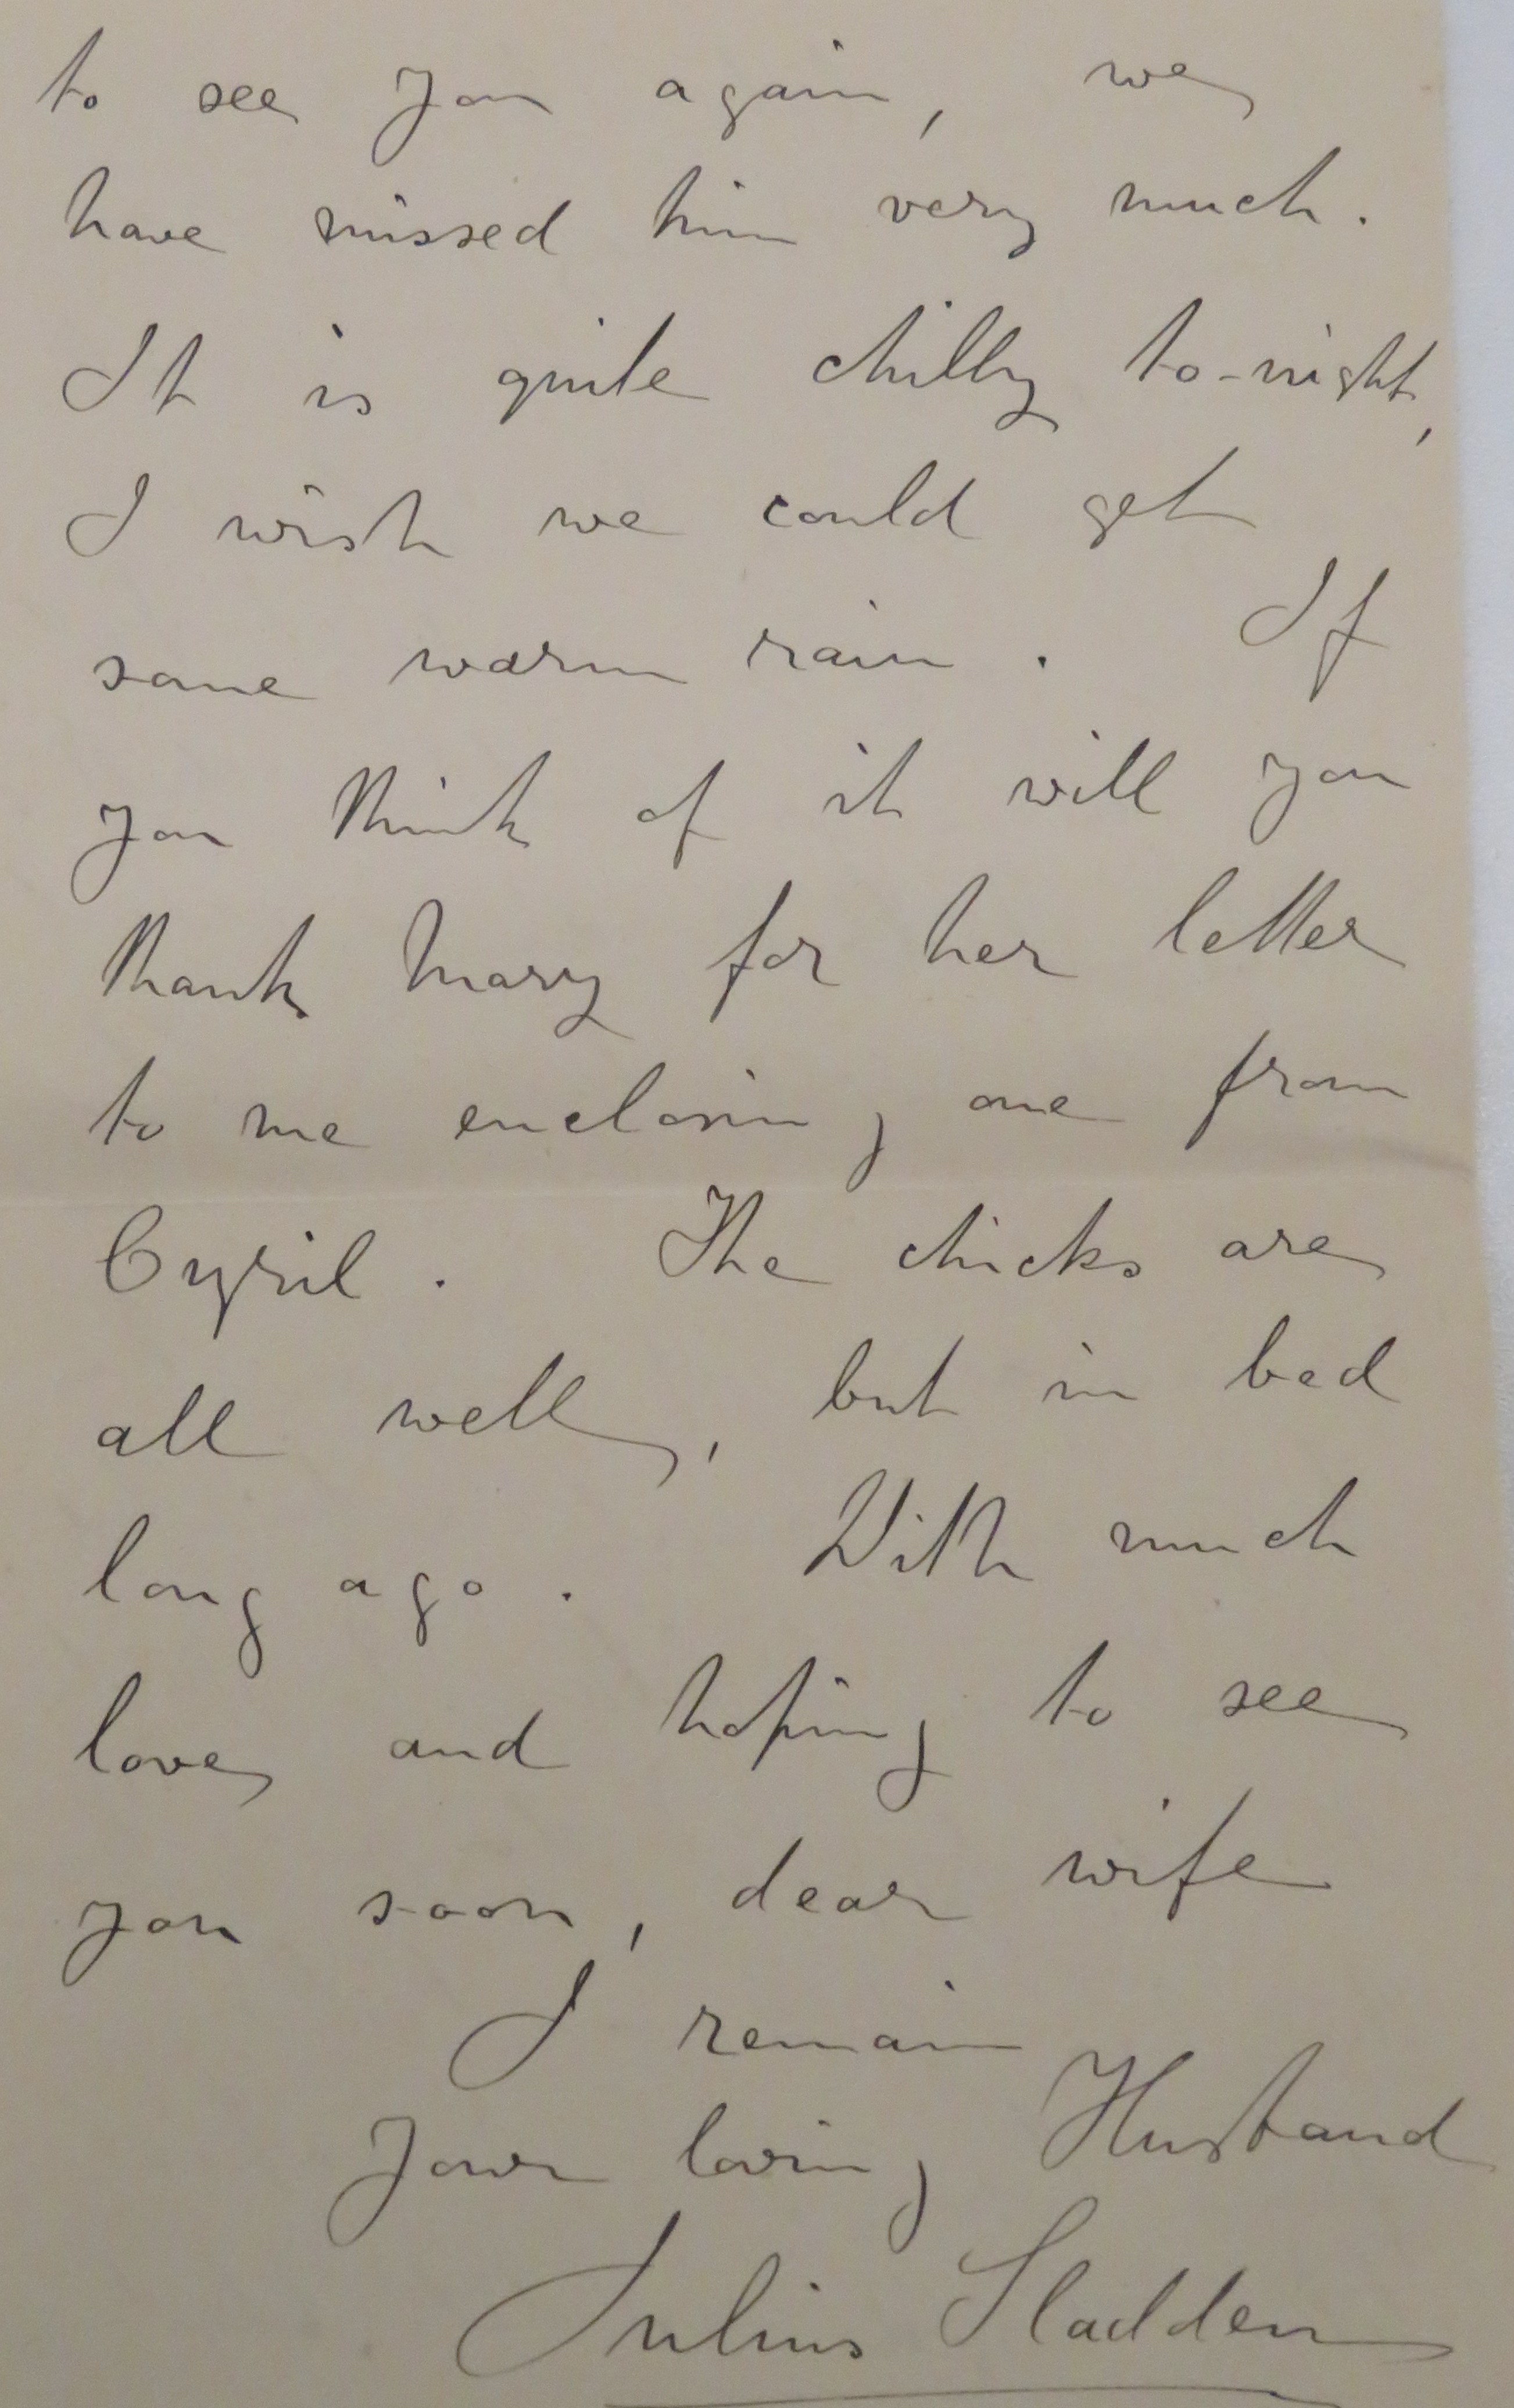 to see you again, we
have missed him very much.
It is quite chilly to-night,
I wish we could get
some warm rain. If
you think of it will you
thank Mary for her letter
to me enclosing one from
Cyril. The chicks are
all well, but in bed
long ago. With much
love and hoping to see
you soon, dear wife
I remain
Your loving Husband
Julius Sladden